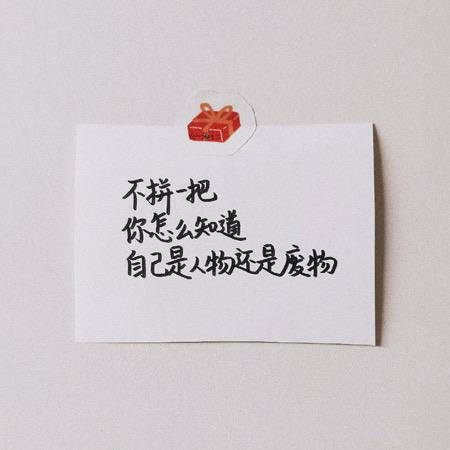 不拼一把
你怎么知道
自己是人物还是废物